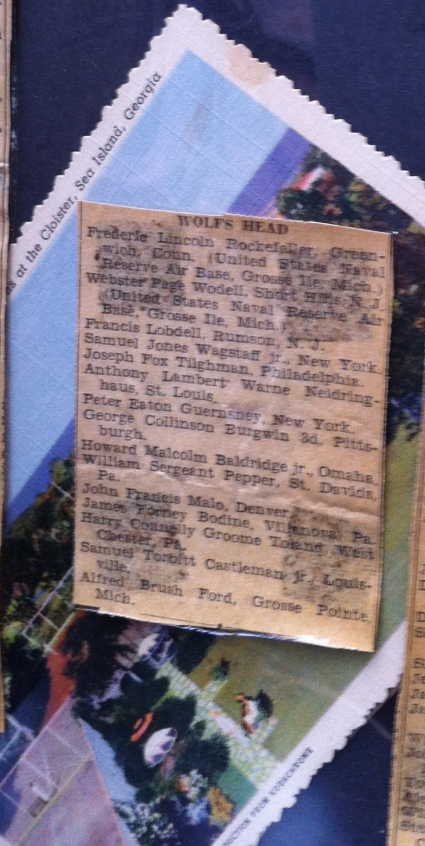 at the Cloister, Sea Island, Georgia
WOLF'S HEAD
Frederic Lincoln Rockefeller, Green-
wich, Conn. (United States Naval
Reserve Air Base, Grosse Ile, Mich.)
Webster Page Wodell, Short Hills, N. J.
(United States Naval Reserve Air
Base, Grosse Ile, Mich.)
Francis Lobdell, Rumson, N. J.
Samuel Jones Wagstaff jr., New York.
Joseph Fox Tilghman, Philadelphia.
Anthony Lambert Warne Neidring-
haus, St. Louis.
Peter Eaton Guernsney, New York.
George Collinson Burgwin 3d, Pitts-
burgh.
Howard Malcolm Baldridge jr., Omaha.
William Sergeant Pepper, St. Davids,
Pa.
John Francis Malo, Denver.
James Forney Bodine, Villanova, Pa.
Harry Connelly Groome Toland, West
Chester, Pa.
Samuel Torbitt Castleman jr., Louis-
ville.
Alfred Brush Ford, Grosse Pointe,
Mich.
FROM KODACHROME